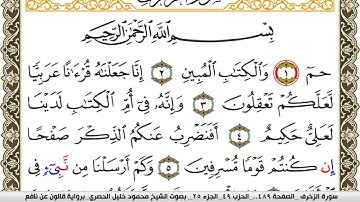 بِسْمِ اِللَّهِ اِلرَّحْمَٰنِ اِلرَّحِيمِ
حمٓ ١ وَالْكِتَٰبِ اِلْمُبِينِ ٢ إِنَّا جَعَلْنَٰهُ قُرْءَٰناً عَرَبِيّاً
لَّعَلَّكُمْ تَعْقِلُونَ ٣ وَإِنَّهُۥ فِےٓ أُمِّ اِلْكِتَٰبِ لَدَيْنَا
لَعَلِيٌّ حَكِيمٌ ٤ أَفَنَضْرِبُ عَنكُمُ اُلذِّكْرَ صَفْحاً
إِن كُنتُمْ قَوْماً مُّسْرِفِينَ ٥ وَكَمْ أَرْسَلْنَا مِن نَّبِےٓءٖ فِے
سورة الزخرف . الصفحة ٤٨٩ . الحزب ٤٩ . الجزء ٢٥ . بصوت الشيخ محمود خليل الحصري برواية قالون عن نافع